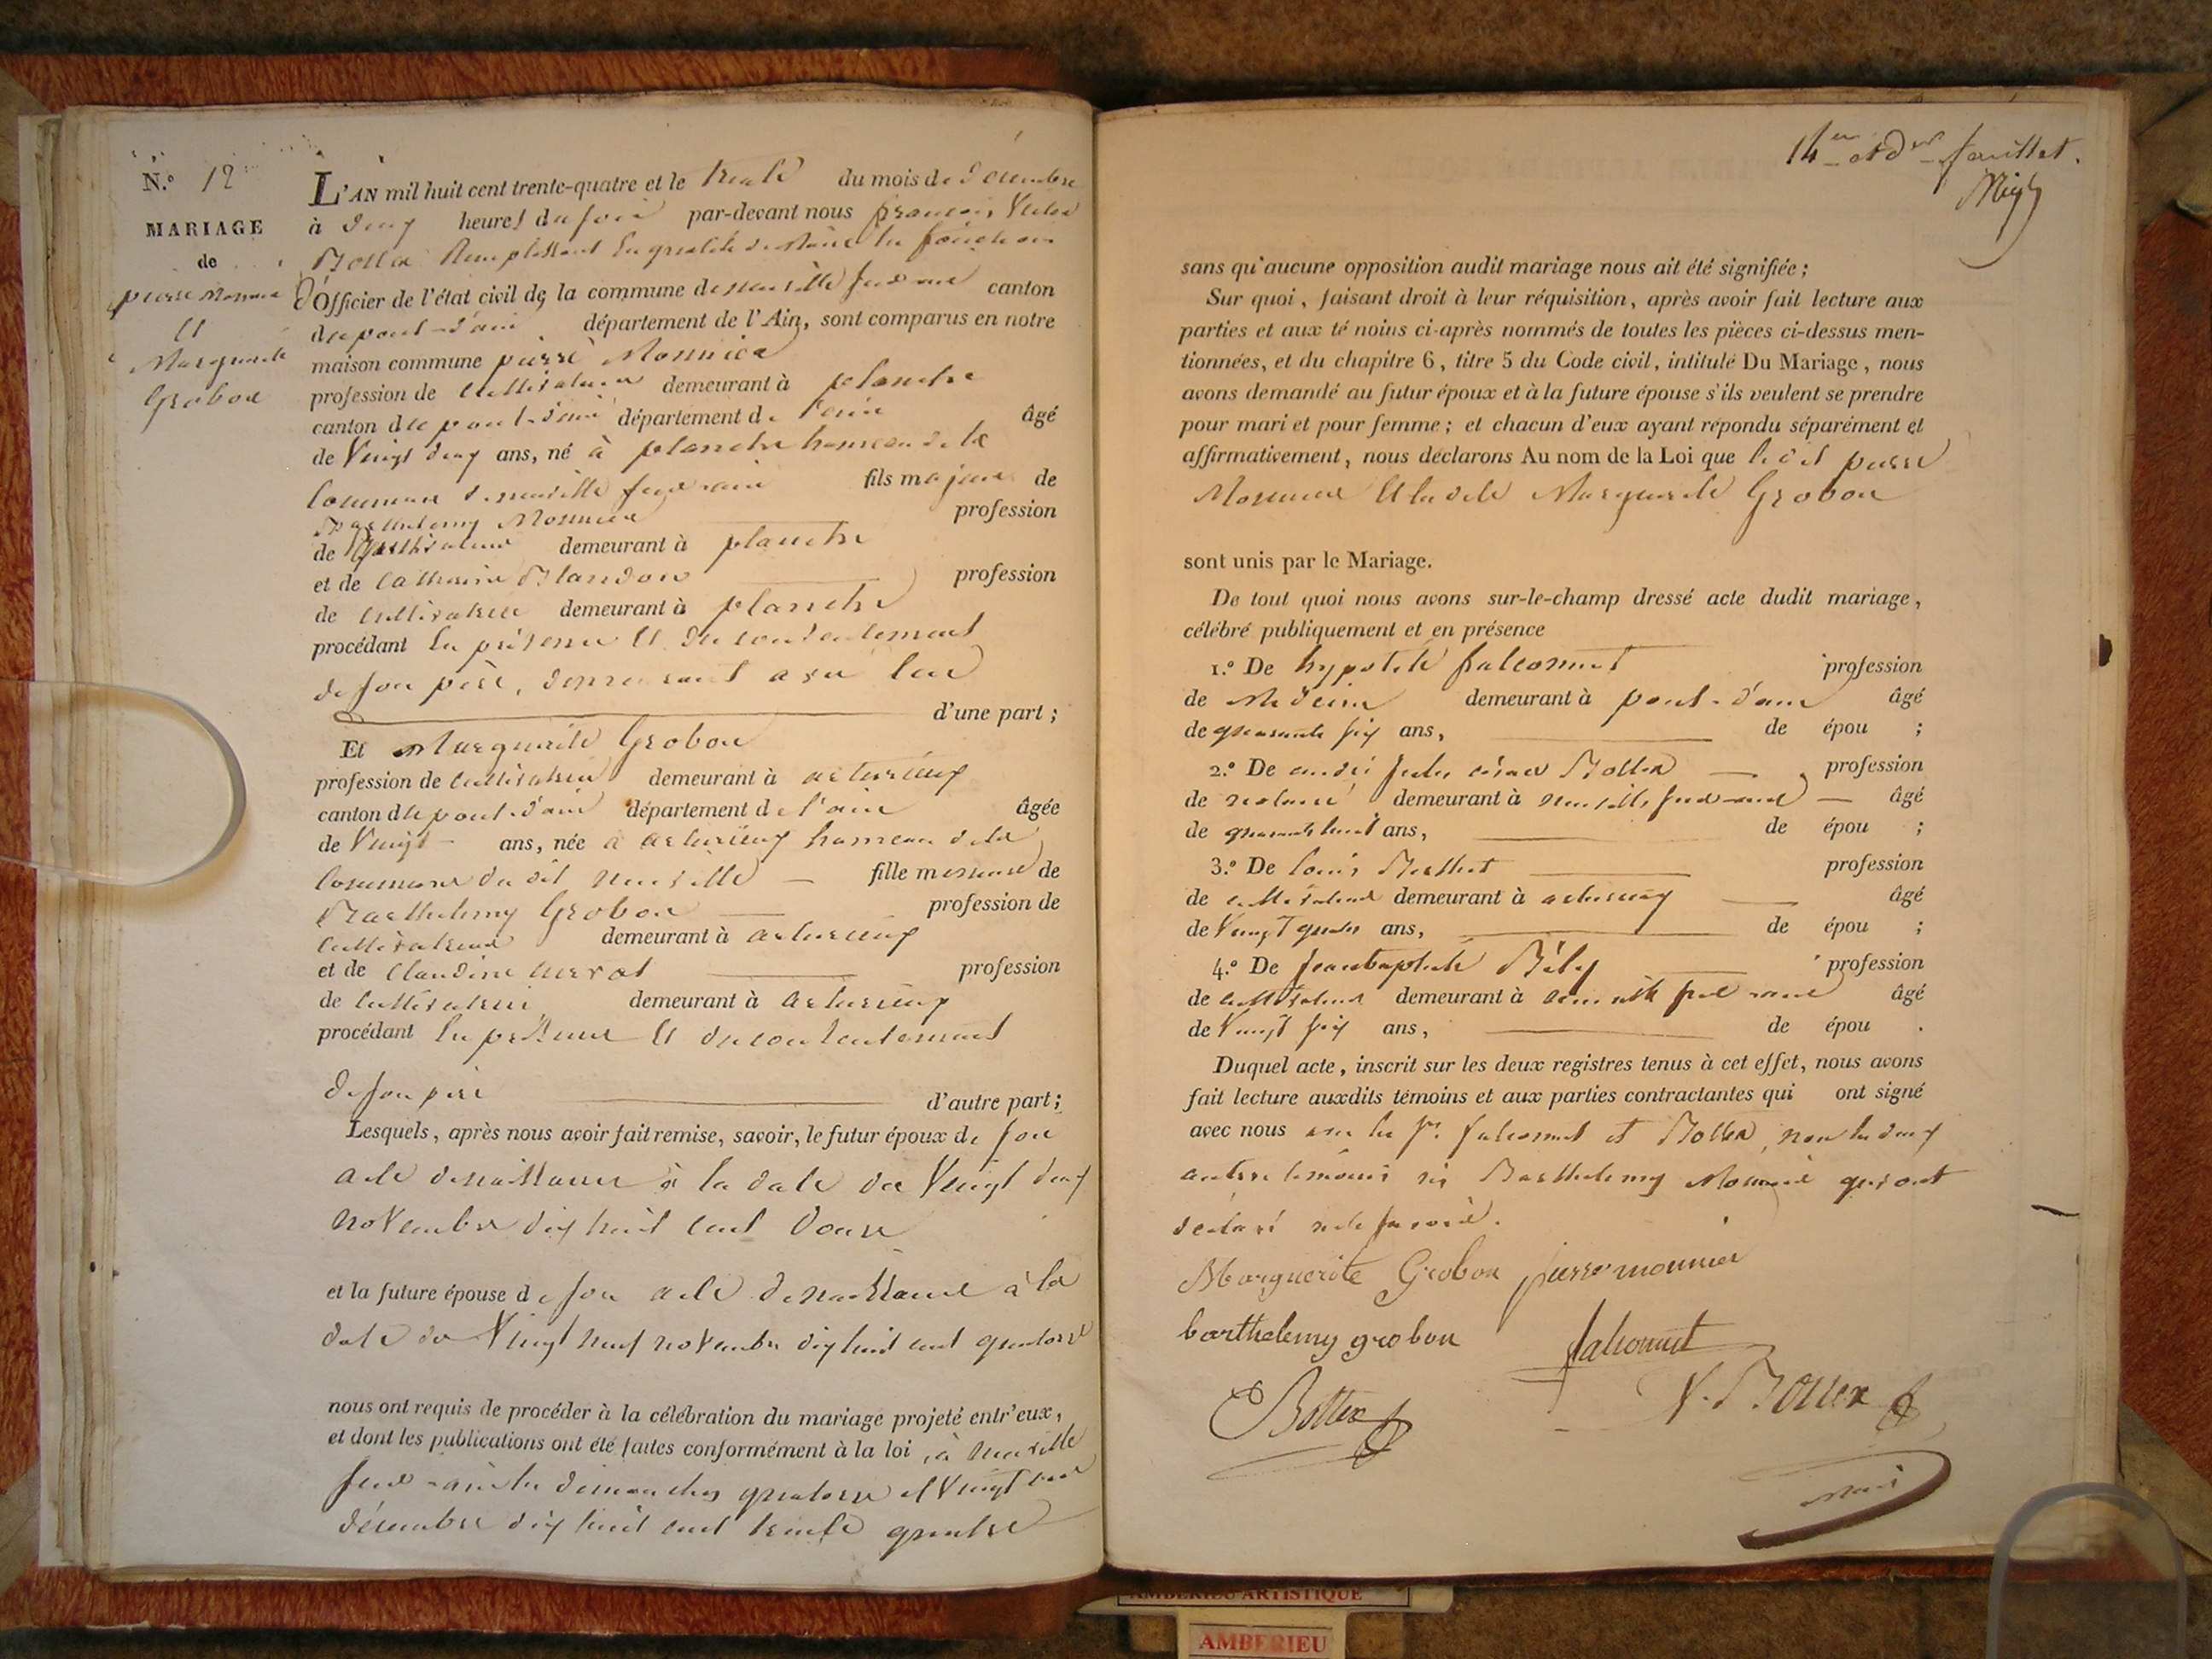 N.° 12
MARIAGE
de
pierre Monnier
Et
Marguerite
Grobon
L'AN mil huit cent trente-quatre et le trente du mois de décembre
à deux heures du soir par-devant nous françois Victor
Bottex Remplissant En qualité de Maire les fonctions
d'Officier de l'état civil de la commune de neuville sur ain canton
du pont-d'ain département de l'Ain, sont comparus en notre
maison commune pierre Monnier
profession de Cultivateur demeurant à planche
canton du pont-d'ain département de l'ain âgé
de Vingt deux ans, né à planche hameau de la
Commune de neuville sur ain fils majeur de
Barthelemy Monnier profession
de Cultivateur demeurant à planche
et de Catherine Blandon profession
de Cultivatrice demeurant à planche
procédant En présence Et du consentement
de son père, demeurant a su lieu
d'une part ;
Et Marguerite Grobon
profession de Cultivatrice demeurant à
canton du pont-d'ain département de l'ain âgée
de Vingt ans, née à hameau de la
Commune du dit neuville fille mineure de
Barthelemy Grobon profession de
Cultivateur demeurant à
et de Claudine profession
de Cultivatrice demeurant à
procédant En présence Et du consentement
de son père
d'autre part ;
Lesquels, après nous avoir fait remise, savoir, le futur époux de son
acte de naissance à la date du Vingt deux
novembre dix huit cent douze
et la future épouse de son acte de naissance à la
date du Vingt neuf novembre dix huit cent quatorze
nous ont requis de procéder à la célébration du mariage projeté entr'eux,
et dont les publications ont été faites conformément à la loi, à neuville
sur-ain les dimanches quatorze et Vingt un
décembre dix huit cent trente quatre
14 et d feuillet.
sans qu'aucune opposition audit mariage nous ait été signifiée ;
Sur quoi, faisant droit à leur réquisition, après avoir fait lecture aux
parties et aux té noins ci-après nommés de toutes les pièces ci-dessus men-
tionnées, et du chapitre 6, titre 5 du Code civil, intitulé Du Mariage, nous
avons demandé au futur époux et à la future épouse s'ils veulent se prendre
pour mari et pour femme ; et chacun d'eux ayant répondu séparément et
affirmativement, nous déclarons Au nom de la Loi que le dit pierre
Monnier Et la dite Marguerite Grobon
sont unis par le Mariage.
De tout quoi nous avons sur-le-champ dressé acte dudit mariage,
célébré publiquement et en présence
1.° De hypolite falconnet profession
de Medecin demeurant à pont-d'ain âgé
de quarante six ans, de épou ;
2.° De andré jules césar Bottex profession
de notaire demeurant à neuville sur-ain âgé
de quarante huit ans, de épou ;
3.° De Louis Berthet profession
de cultivateur demeurant à âgé
de Vingt quatre ans, de épou ;
4.° De jean baptiste Bély profession
de cultivateur demeurant à neuville sur ain âgé
de Vingt six ans, de épou .
Duquel acte, inscrit sur les deux registres tenus à cet effet, nous avons
fait lecture auxdits témoins et aux parties contractantes qui ont signé
avec nous les falconnet et Bottex, non les deux
autres témoins ni Barthelemy Monnier qui ont
déclaré ne le savoir.
Marguerite Grobon pierre monnier
barthelemy grobon falconnet
Bottex V. Bottex
maire
AMBERIEU ARTISTIQUE
AMBERIEU